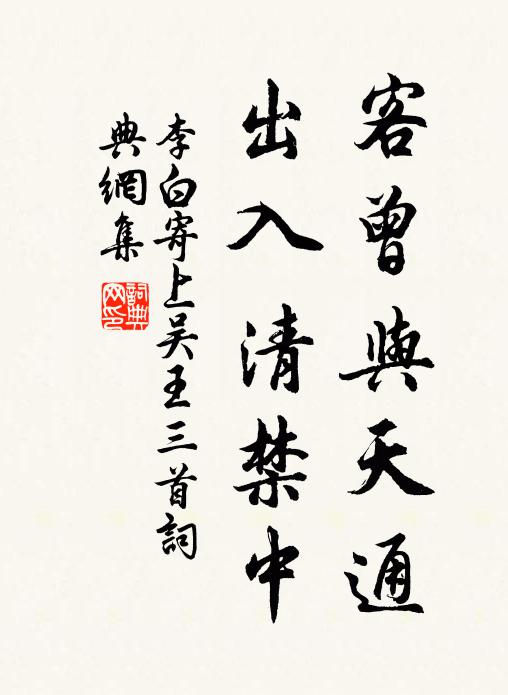 客曾與天通
出入清禁中
李白寄上吴王三首詞
典網集
詞典网印